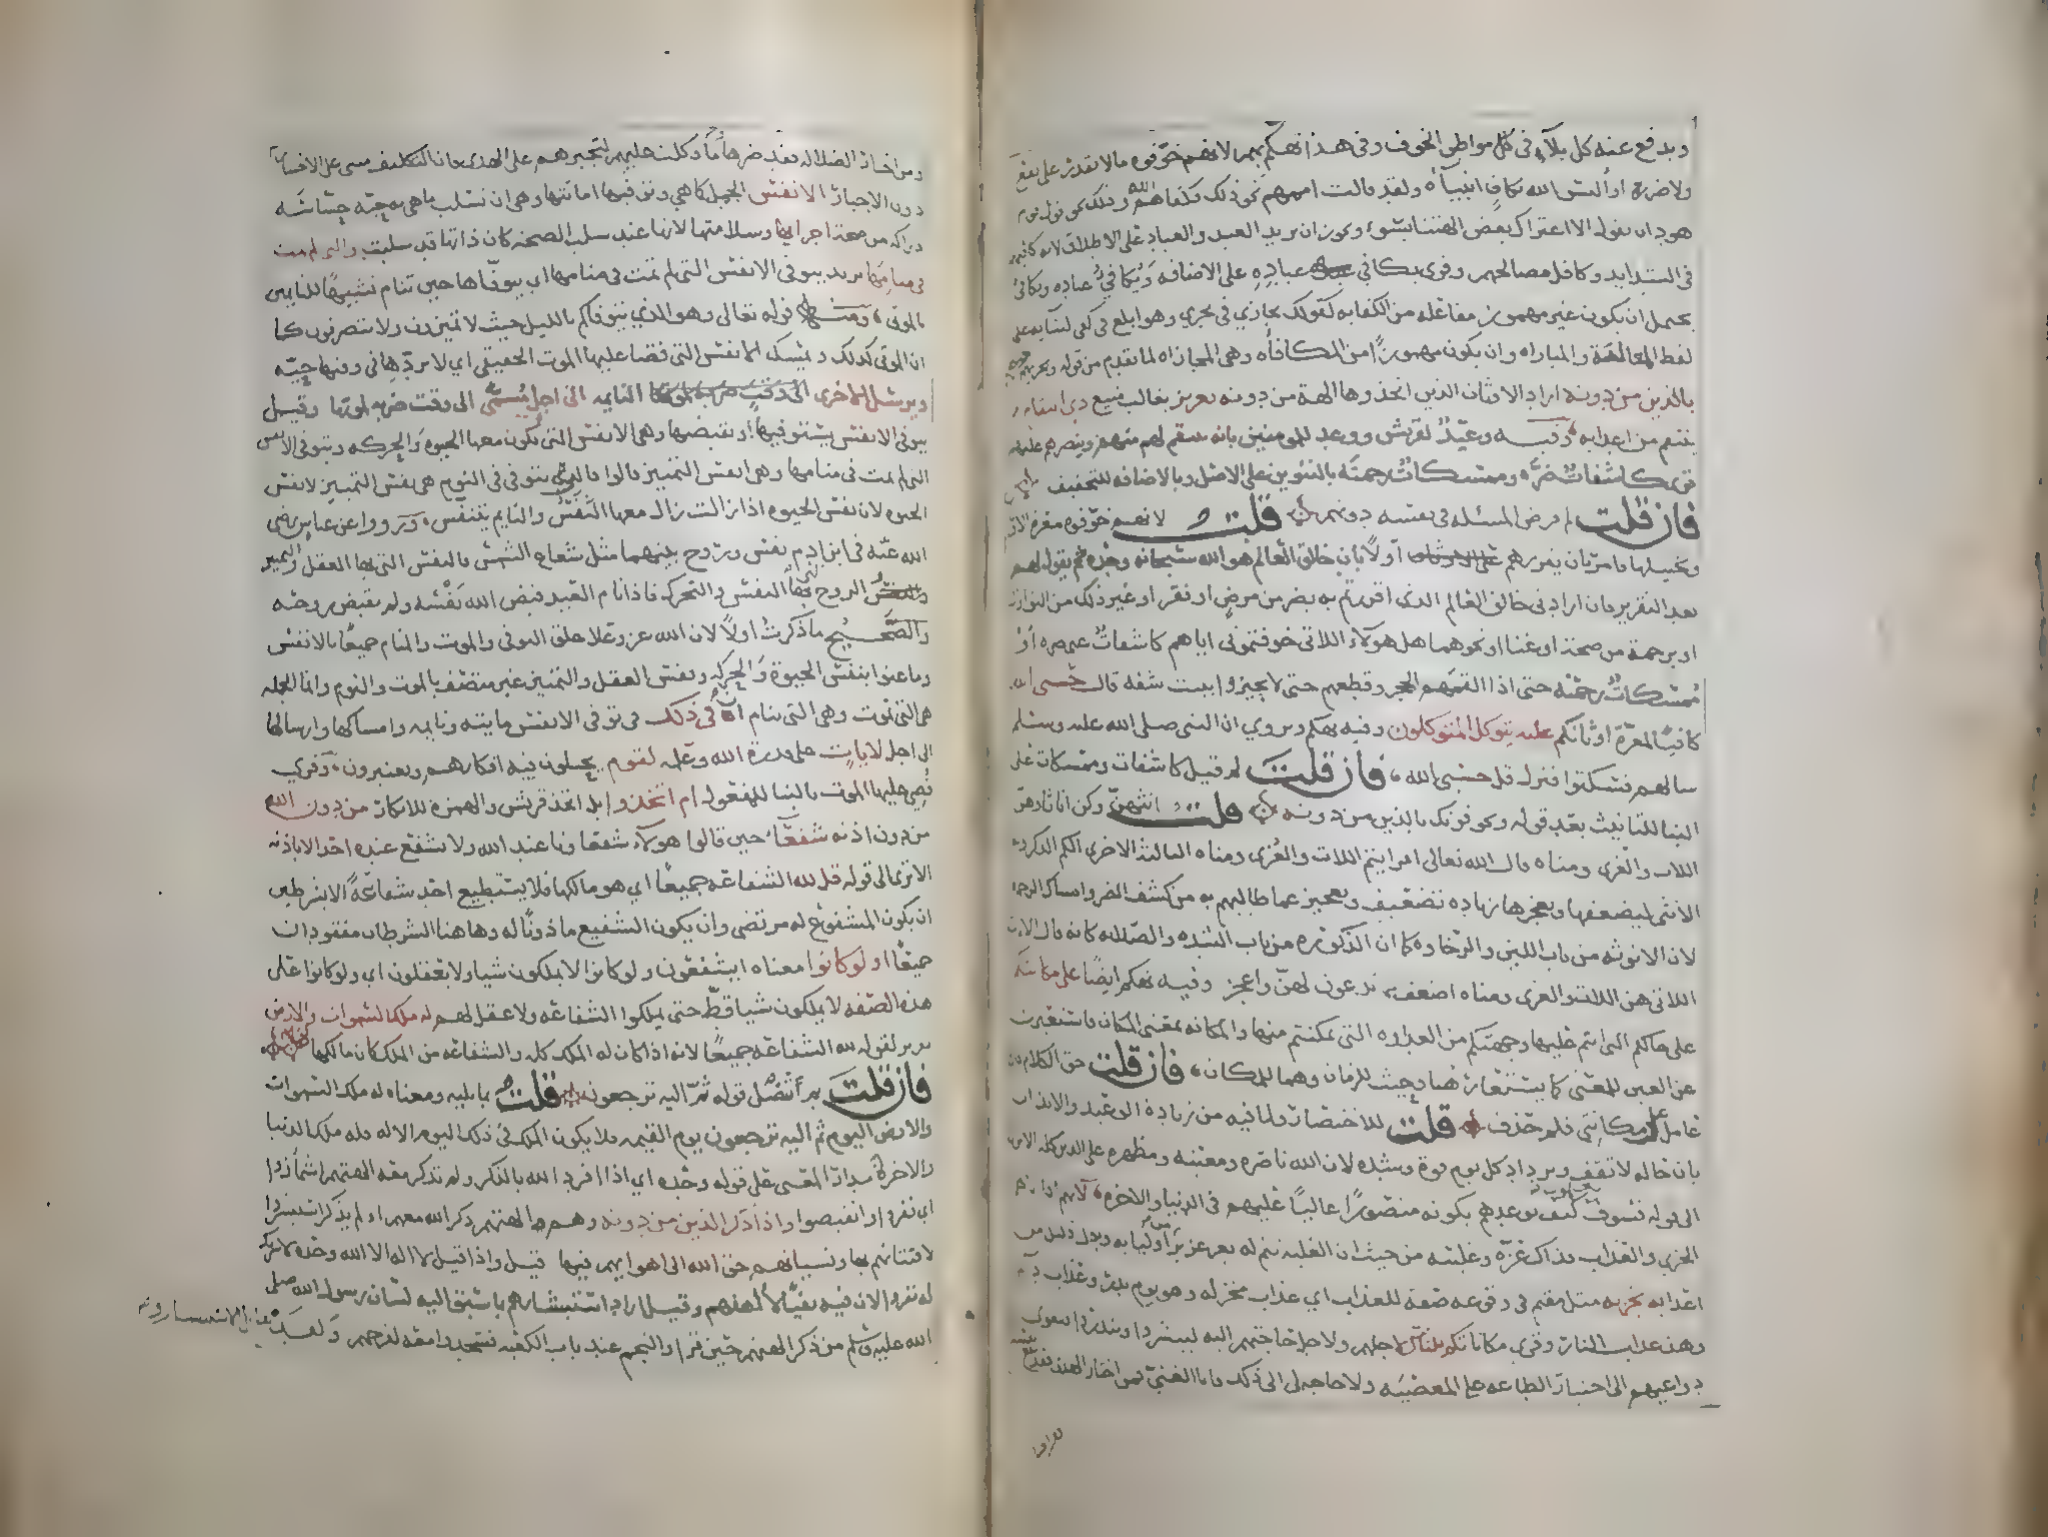 ويدفع عنه كل بلآء في كل مواطن الخوف وفي هذا تهكم بهم لانهم خوفوه مالا يقدر على نفع
ولا ضر او اليس الله بكاف انبيآه ولقد قالت اممهم نحو ذلك فكفاهم الله وذلك نحو قول قوم
هود ان نقول الا اعتراك بعض الهتنا بسوء ويجوز ان يريد العبد والعباد على الاطلاق لانه كافيهم
في الشدايد وكافل مصالحهم وقرى بكافي عباده على الاضافة ويكافي عباده ويكافي
يحتمل ان يكون غير مهموز مفاعلة من الكفايه كقولك يجازي في يجزي وهو ابلغ في كفى لبنايه على
لفظ المغالبة والمباراه وان يكون مهموزا من المكافأه وهي المجازاه لما تقدم من قوله ويجزيهم اجرهم
بالذين من دونه اراد الاوثان الذين اتخذوها الهة من دونه بعزيز بغالب منيع ذي انتقام
ينتقم من اعدايه وفيه وعيد لقريش ووعد للمومنين بانه ينتقم لهم منهم وينصرهم عليهم
قرى كاشفات ضره وممسكات رحمته بالتنوين على الاصل وبالاضافه للتخفيف
فان قلت لم فرض المسئله في نفسه دونهم قلت لانهم خوفوه معرة الاوثان
وتخبيلها فامر بان يقررهم اولا بان خالق العالم هو الله سبحانه وحده ثم يقول لهم
بعد التقرير فان ارادني خالق العالم الذي اقررتم به بضر من مرض او فقر او غير ذلك من النوازل
او برحمة من صحة او غنا او نحوهما هل هولاء اللاتي خوفتموني اياهم كاشفات عني ضره او
ممسكات رحمته حتى اذا القمهم الحجر وقطعهم حتى لا يحيروا ببنت شفه قال حسبي الله
كافيا لمعرة اوثانكم عليه يتوكل المتوكلون وفيه تهكم ويروي ان النبي صلى الله عليه وسلم
سالهم فسكتوا فنزل قل حسبي الله فان قلت لم قيل كاشفات وممسكات على
التانيث بعد قوله ويخوفونك بالذين من دونه قلت انثهن وكن اناثا وهن
اللات والعزى ومناه قال الله تعالى افرايتم اللات والعزى ومناه الثالثة الاخرى الكم الذكر وله
الانثى ليضعفها ويعجزها زياده تضعيف وتعجيز عما طالبهم به من كشف الضر وامساك الرحمه
لان الانوثه من باب اللين والرخاوه كما ان الذكوره من باب الشده والصلابه كانه قال الاناث
اللاتي هن اللات والعزى ومناه اضعف مما تدعون لهن واعجز وفيه تهكم ايضا على مكانتكم
على حالكم التي انتم عليها وجهتكم من العداوه التي تمكنتم منها والمكانه بمعنى المكان فاستعيرت
عن العين للمعنى كما يستعار هنا وحيث للزمان وهما للمكان فان قلت حق الكلام فاني
عامل على مكانتي فلم حذف قلت للاختصار ولما فيه من زيادة الوعيد والايذان
بان حاله لا تقف ويزداد كل يوم قوة وشده لان الله ناصره ومعينه ومظهره على الدين كله الا ترى
الى قوله فسوف تعلمون كيف توعدهم بكونه منصورا عاليا عليهم في الدنيا والاخره لانهم اذا اتاهم
الخزي والعذاب فذاك عزه وغلبته من حيث ان الغلبه تتم له بعز عزيز من اوليايه وبذل ذليل من
اعدايه يخزيه مثل مقيم في وقوعه صفة للعذاب اي عذاب مخز له وهو يوم بدر وعذاب دايم
وهذ عذاب النار وقرى مكاناتكم للناس لاجلهم ولاجل حاجتهم اليه ليبشروا وينذروا فتقوى
دواعيهم الى اختيار الطاعه على المعصيه ولا حاجه لي الى ذلك فانا الغني فمن اختار الهدى فقد نفع نفسه
ومن اختار الضلاله فقد ضرها وما وكلت عليهم لتجبرهم على الهدى فان التكليف مبني على الاختيار
دون الاجبار الانفس الجمل كما هي وتوفيها اماتتها وهي ان تسلب ما هي به حيه حساسه
دراكه من صحة اجزايها وسلامتها لانها عند سلب الصحه كان ذاتها قد سلبت والتي لم تمت
في منامها يريد ويتوفى الانفس التي لم تمت في منامها اي يتوفاها حين تنام تشبيها للنايمين
بالموتى ومنه قوله تعالى وهو الذي يتوفاكم بالليل حيث لا تميزون ولا تتصرفون كما
ان الموتى كذلك ويمسك الانفس التي قضا عليها الموت الحقيقي اي لا يردها في وقتها حيه
ويرسل الاخرى النايمه الى اجل مسمى الى وقت ضربه لموتها وقيل
يتوفى الانفس يستوفيها ويقبضها وهي الانفس التي تكون معها الحيوه والحركه ويتوفى الانفس
التي لم تمت في منامها وهي انفس التمييز قالوا فالتي تتوفى في النوم هي نفس التمييز لا نفس
الحيوه لان نفس الحيوه اذا زالت زال معها النفس والنايم يتنفس ورووا عن عباس رضي
الله عنه في ابن ادم نفس وروح بينهما مثل شعاع الشمس فالنفس التي بها العقل والتمييز
والروح التي بها النفس والتحرك فاذا نام العبد قبض الله نفسه ولم يقبض روحه
والصحيح ما ذكرت اولا لان الله عز وعلا علق التوفي والموت والمنام جميعا بالانفس
وما عنوا بنفس الحيوة والحركه ونفس العقل والتمييز غير متصف بالموت والنوم وانما الجمله
هي التي تموت وهي التي تنام ان في ذلك في توفي الانفس مايته ونايمه وامساكها وارسالها
الى اجل لايات على قدرة الله وعلمه لقوم يجيلون فيه افكارهم ويعتبرون وقرى
قضي عليها الموت بالبنا للمفعول ام اتخذوا بل اتخذ قريش والهمزه للانكار من دون الله
من دون اذنه شفعآ حين قالوا هولآء شفعاونا عند الله ولا يشفع عنده احد الا باذنه
الا ترى الى قوله قل لله الشفاعه جميعا اي هو مالكها فلا يستطيع احد شفاعة الا بشرطين
ان يكون المشفوع له مرتضى وان يكون الشفيع ماذونا له وهاهنا الشرطان مفقودان
جميعا اولو كانوا معناه ايشفعون ولو كانوا لا يملكون شيا ولا يعقلون اي ولو كانوا على
هذه الصفه لا يملكون شيا قط حتى يملكوا الشفاعه ولا عقل لهم له ملك السموات والارض
تقرير لقوله لله الشفاعه جميعا لانه اذا كان له الملك كله والشفاعه من الملك كان مالكها
فان قلت بم اتصل قوله ثم اليه ترجعون قلت بما يليه ومعناه له ملك السموات
والارض اليوم ثم اليه ترجعون يوم القيمه فلا يكون الملك في ذلك اليوم الا له فله ملك الدنيا
والاخره مدار المعنى على قوله وحده اي اذا افرد الله بالذكر ولم تذكر معه الهتهم اشمازوا
اي نفروا وانقبضوا واذا ذكر الذين من دونه وهم الهتهم ذكر الله معهم او لم يذكر استبشروا
لافتتانهم بها ونسيانهم حق الله الى هواهم فيها قيل واذا قيل لا اله الا الله وحده لا شريك
له نفروا لان فيه نفيا لالهتهم وقيل اراد استبشارهم بما سبق اليه لسان رسول الله صلى
الله عليه وسلم من ذكر الهتهم حين قرا والنجم عند باب الكعبه فسجدوا معه لفرحهم ولقد تقابل الاستبشار